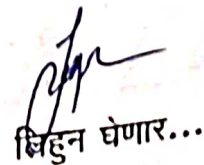 लिहुन घेणार...